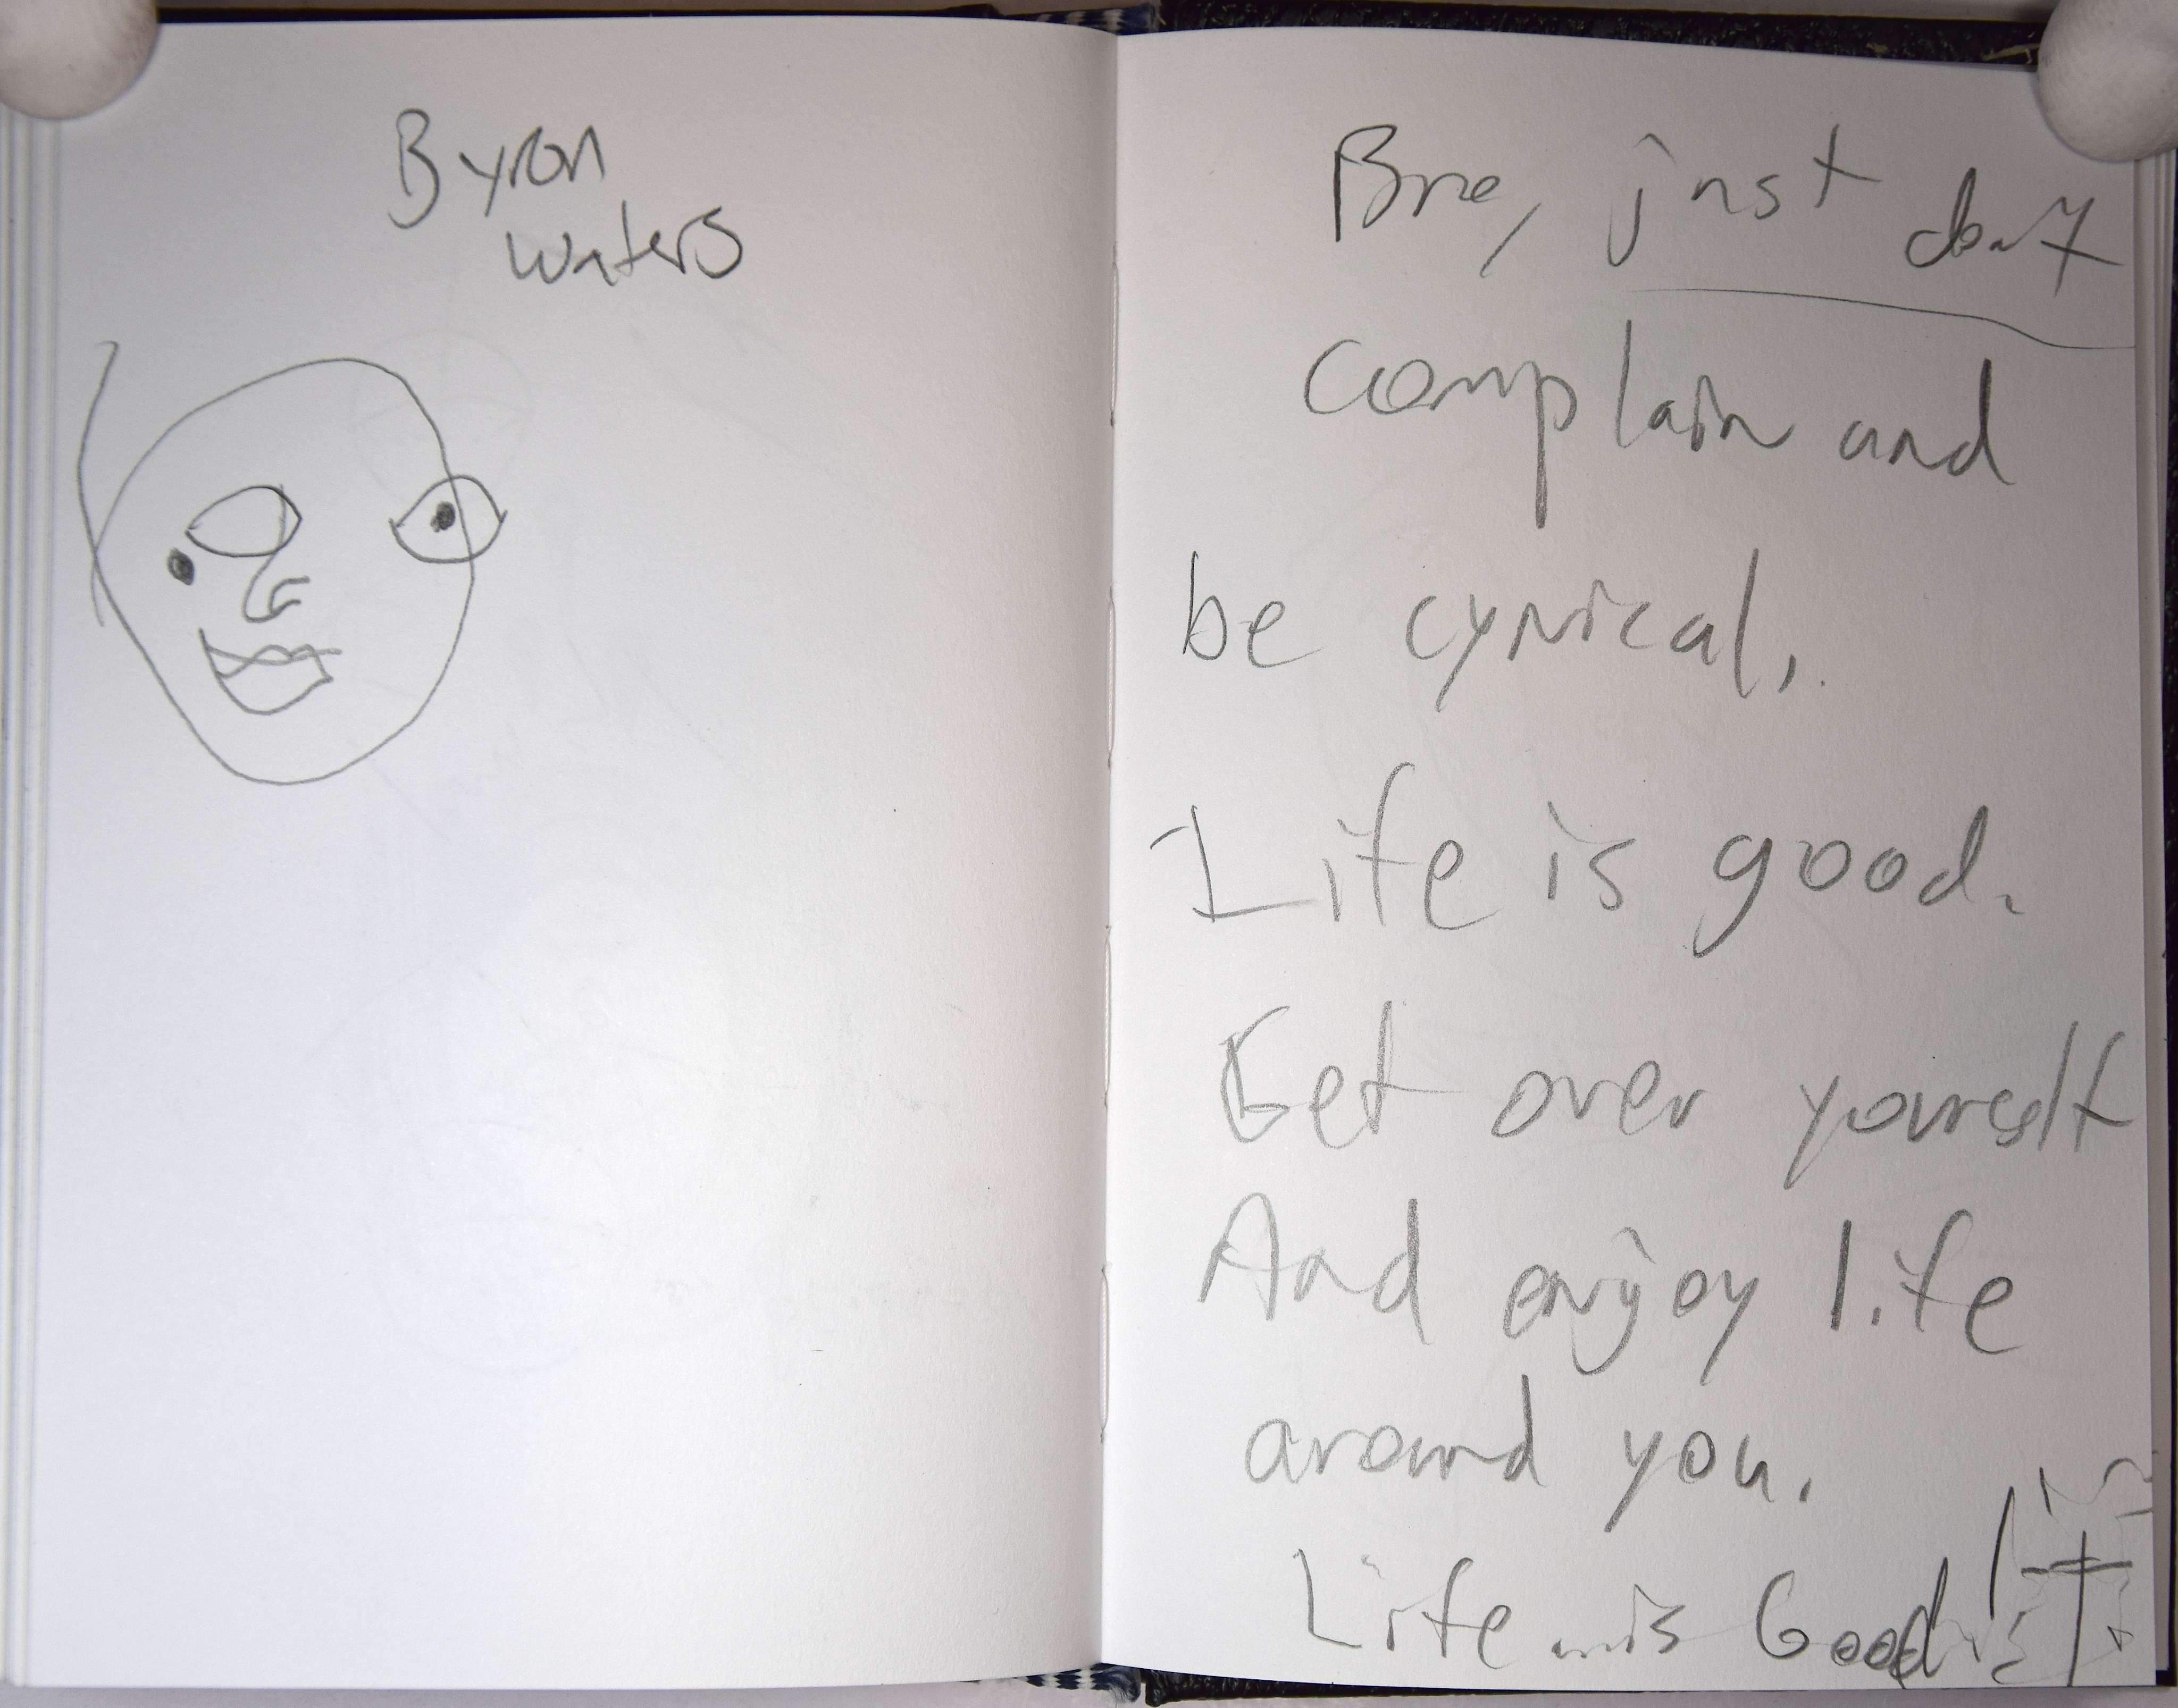 Byron
Waters
Bre, just don't
complain and
be cynical,
Life is good.
Get over yourself
And enjoy life
around you.
Life is Good!